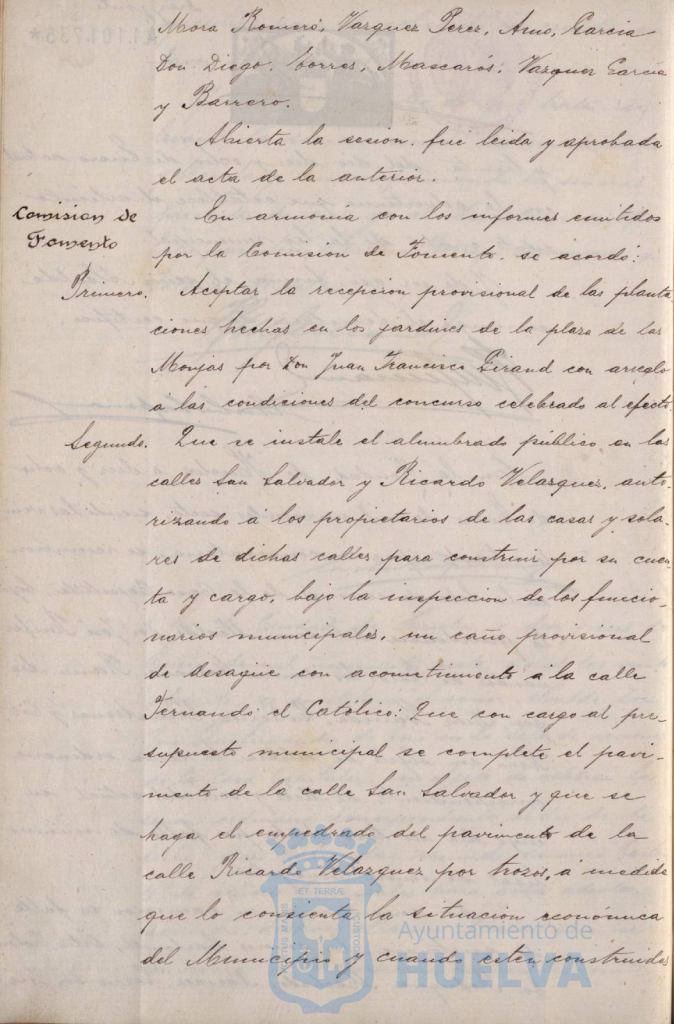 Mora Romero, Vazquez Perez, Amo, Garcia
Don Diego, Correa, Mascarós, Vazquez García
y Barrero.
Abierta la sesion, fué leida y aprobada
el acta de la anterior.
Comision de
Fomento
En armonía con los informes emitidos
por la Comision de Fomento, se acordó:
Primero. Aceptar la recepcion provisional de las planta-
ciones hechas en los jardines de la plaza de las
Monjas por Don Juan Francisco Girand con arreglo
á las condiciones del concurso celebrado al efecto.
Segundo. Que se instale el alumbrado público en las
calles San Salvador y Ricardo Velazquez, auto-
rizando á los propietarios de las casas y sola-
res de dichas calles para construir por su cuen-
ta y cargo, bajo la inspeccion de los funcio-
narios municipales, un caño provisional
de desagüe con acometimiento á la calle
Fernando el Católico: Que con cargo al pre-
supuesto municipal se complete el pavi-
mento de la calle San Salvador y que se
haga el empedrado del pavimento de la
calle Ricardo Velazquez por trozos, á medida
que lo consienta la situacion económica
del Municipio y cuando esten construidas
ET TERRÆ
Ayuntamiento de
HUELVA